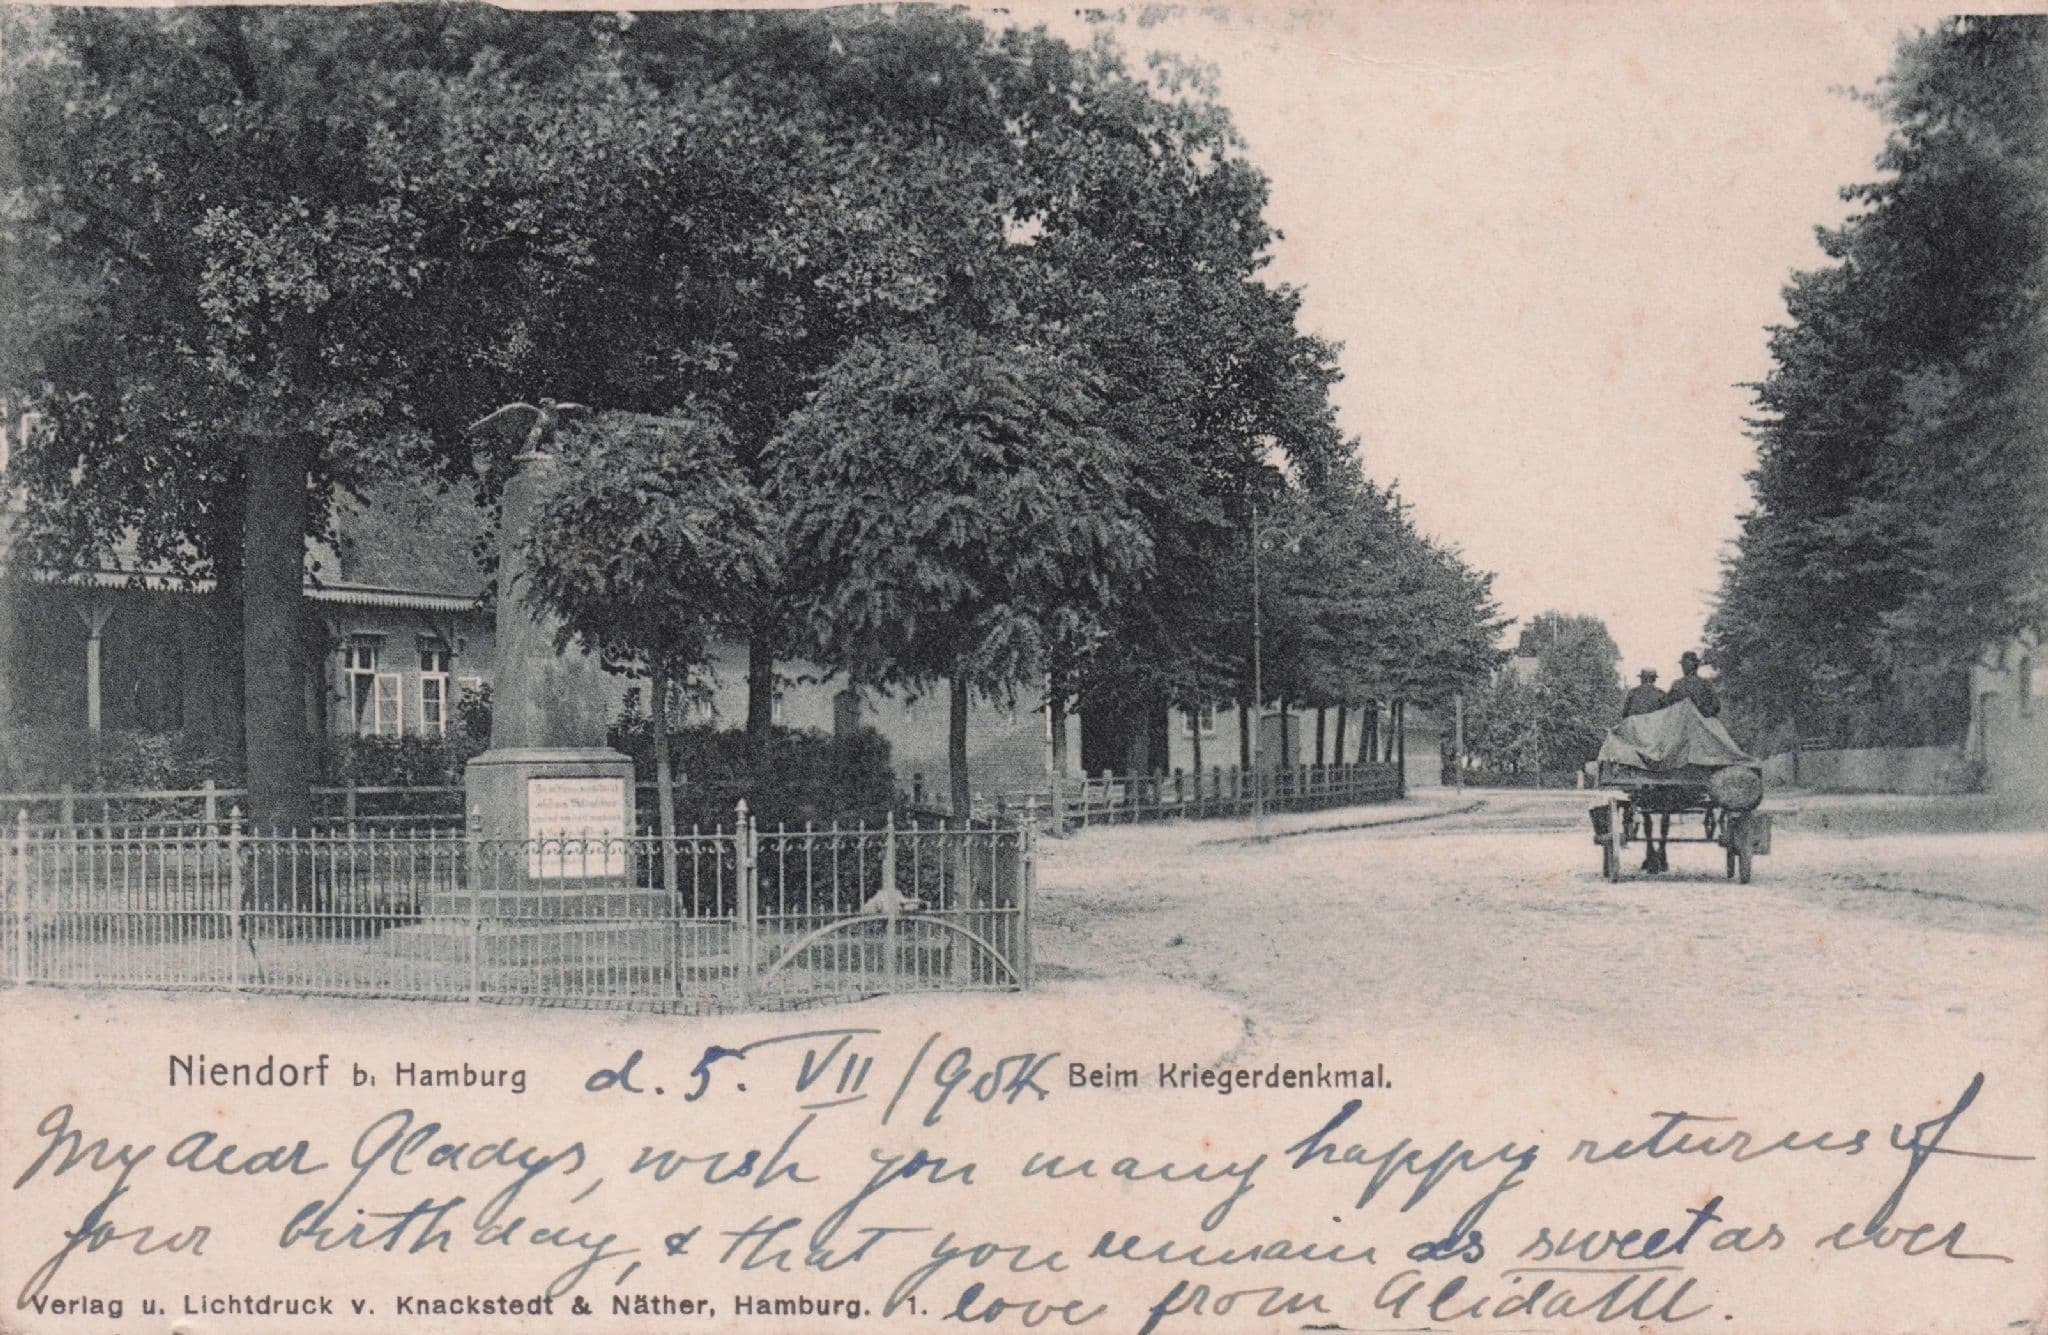 Niendorf b. Hamburg d. 5. VII/904. Beim Kriegerdenkmal.
My dear Gladys, wish you many happy returns of
your birthday, & that you remain as sweet as ever
love from
Verlag u. Lichtdruck v. Knackstedt & Näther, Hamburg. 1.